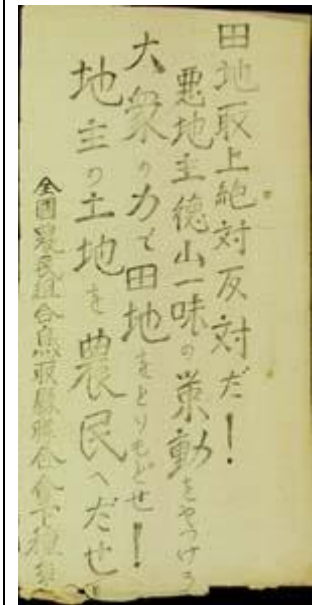 田地取上絶対反対だ！
悪地主徳山一味の策動をやつけろ
大衆の力で田地をとりもどせ！
地主の土地を農民へだせ！
全国農民組合鳥取県聯合会下